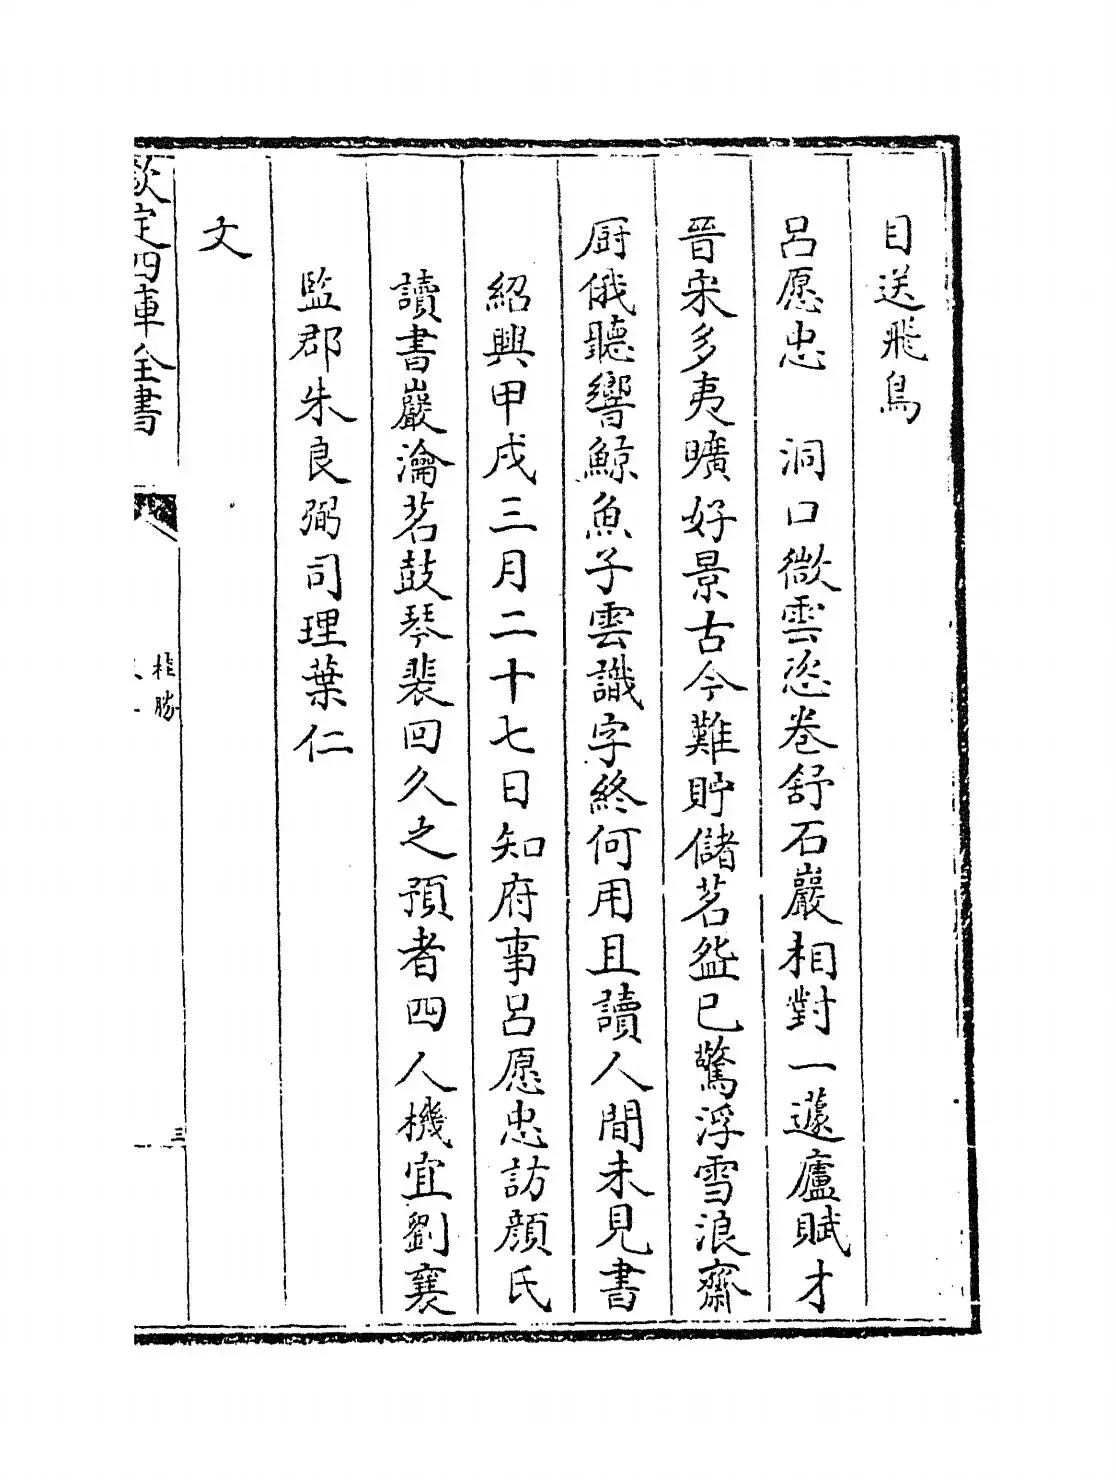 目送飛鳥
呂愿忠　洞口微雲恣卷舒石巖相對一蘧廬賦才
晉宋多夷曠好景古今難貯儲茗盌已驚浮雪浪齋
厨俄聽響鯨魚子雲識字終何用且讀人間未見書
紹興甲戌三月二十七日知府事呂愿忠訪顔氏
讀書巖瀹茗鼓琴裴回久之預者四人機宜劉襄
監郡朱良弼司理葉仁
文
欽定四庫全書
桂勝
三